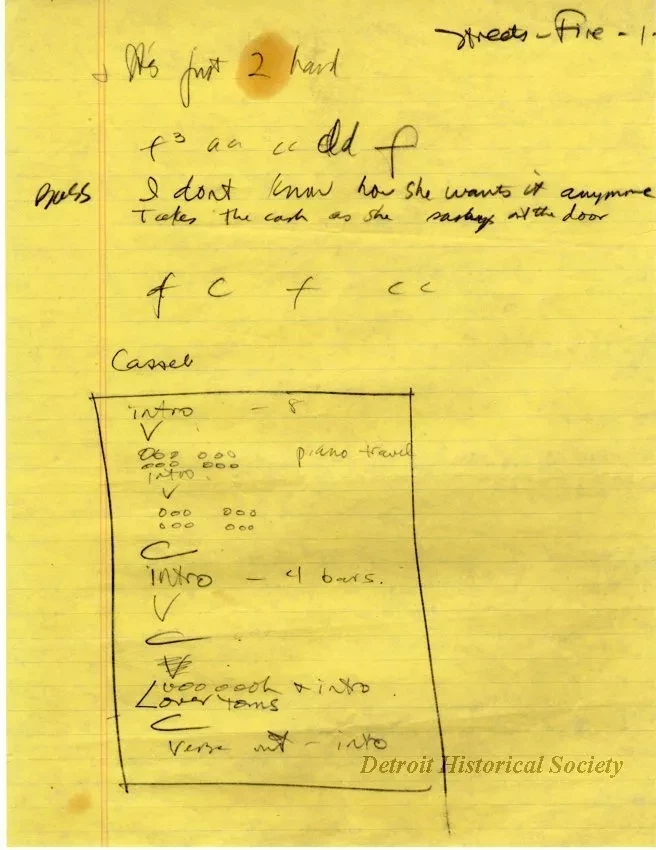 Streets - Fire - 1-
It's just 2 hard
f³ aa cc dd f
I dont know how she wants it anymore
Takes the cash as she at the door
f C f c c
intro - 8
V
ooo ooo piano travel
ooo ooo
intro.
V
ooo ooo
ooo ooo
C
intro - 4 bars.
V
C
V
oooooh + intro
Lower toms
C
verse out - into
Detroit Historical Society